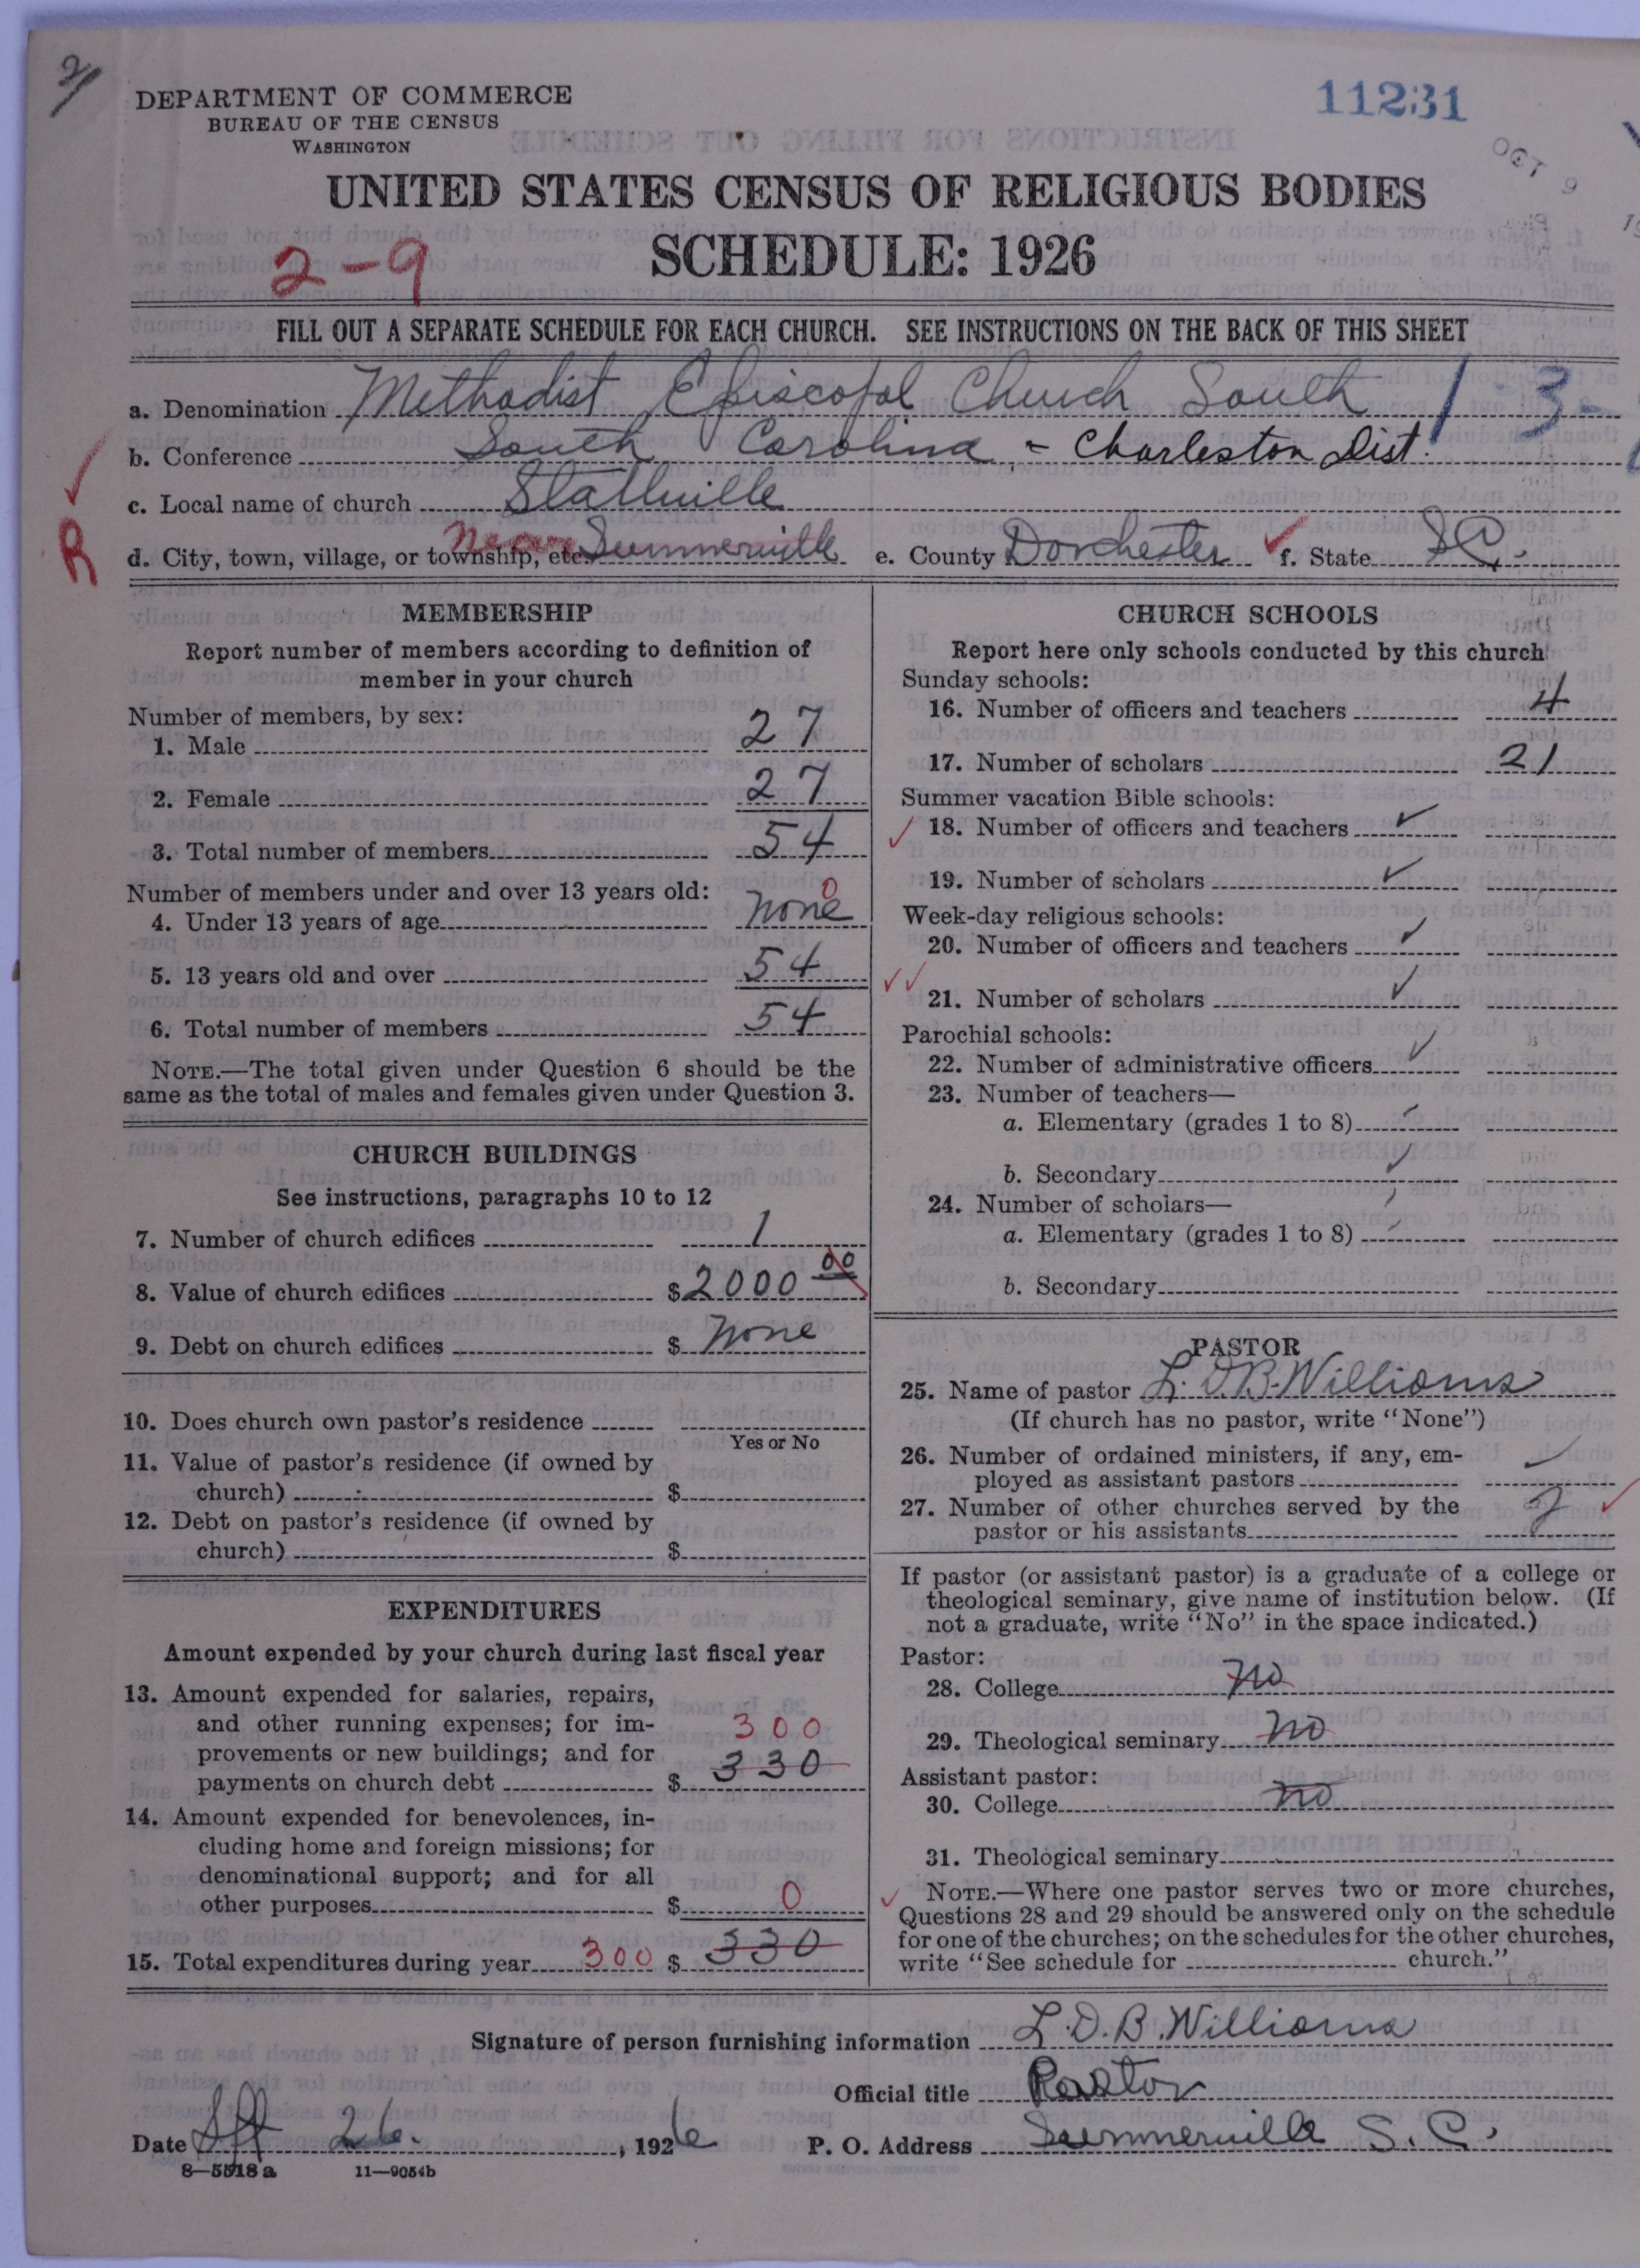 DEPARTMENT OF COMMERCE
BUREAU OF THE CENSUS
WASHINGTON
11231
OCT 9
UNITED STATES CENSUS OF RELIGIOUS BODIES
SCHEDULE: 1926
2-9
FILL OUT A SEPARATE SCHEDULE FOR EACH CHURCH. SEE INSTRUCTIONS ON THE BACK OF THIS SHEET
a. Denomination Methodist Episcopal Church South 1-3-
b. Conference South Carolina - Charleston Dist.
c. Local name of church Stallville
R
d. City, town, village, or township, etc. near Summerville e. County Dorchester f. State S.C.
MEMBERSHIP
Report number of members according to definition of
member in your church
Number of members, by sex:
1. Male 27
2. Female 27
3. Total number of members 54
Number of members under and over 13 years old:
4. Under 13 years of age none 0
5. 13 years old and over 54
6. Total number of members 54
NOTE.—The total given under Question 6 should be the
same as the total of males and females given under Question 3.
CHURCH BUILDINGS
See instructions, paragraphs 10 to 12
7. Number of church edifices 1
8. Value of church edifices $2000 00
9. Debt on church edifices $ none
10. Does church own pastor's residence
Yes or No
11. Value of pastor's residence (if owned by
church) $
12. Debt on pastor's residence (if owned by
church) $
EXPENDITURES
Amount expended by your church during last fiscal year
13. Amount expended for salaries, repairs,
and other running expenses; for im-
provements or new buildings; and for
payments on church debt $ 330 300
14. Amount expended for benevolences, in-
cluding home and foreign missions; for
denominational support; and for all
other purposes $ 0
15. Total expenditures during year 300 $ 330
CHURCH SCHOOLS
Report here only schools conducted by this church
Sunday schools:
16. Number of officers and teachers 4
17. Number of scholars 21
Summer vacation Bible schools:
18. Number of officers and teachers ✓
19. Number of scholars ✓
Week-day religious schools:
20. Number of officers and teachers ✓
21. Number of scholars ✓
Parochial schools:
22. Number of administrative officers ✓
23. Number of teachers—
a. Elementary (grades 1 to 8) ✓
b. Secondary ✓
24. Number of scholars—
a. Elementary (grades 1 to 8)
b. Secondary
PASTOR
25. Name of pastor L. D. B. Williams
(If church has no pastor, write "None")
26. Number of ordained ministers, if any, em-
ployed as assistant pastors
27. Number of other churches served by the
pastor or his assistants 2
If pastor (or assistant pastor) is a graduate of a college or
theological seminary, give name of institution below. (If
not a graduate, write "No" in the space indicated.)
Pastor:
28. College No
29. Theological seminary No
Assistant pastor:
30. College No
31. Theological seminary
NOTE.—Where one pastor serves two or more churches,
Questions 28 and 29 should be answered only on the schedule
for one of the churches; on the schedules for the other churches,
write "See schedule for church."
Signature of person furnishing information L. D. B. Williams
Official title Pastor
Date Sept 26. , 1926 P. O. Address Summerville S. C.
8—5518 a 11—9054b